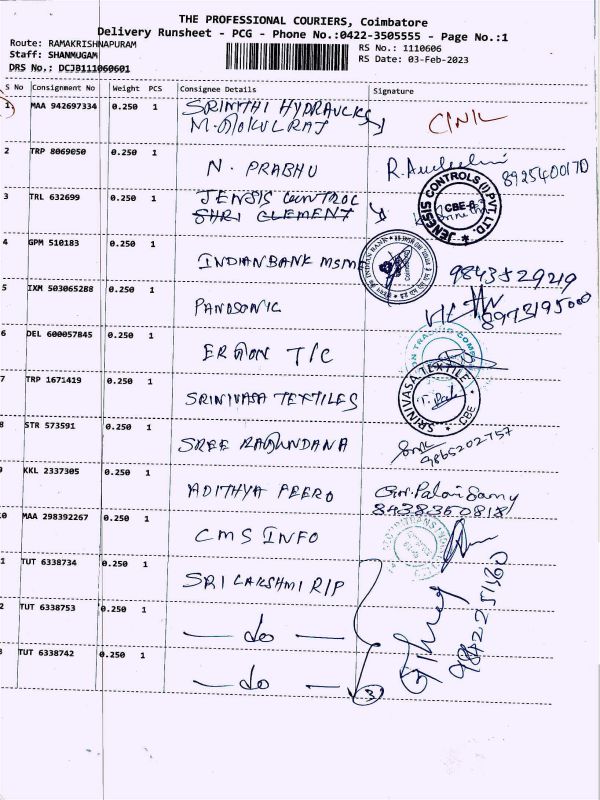 THE PROFESSIONAL COURIERS, Coimbatore
Delivery Runsheet - PCG - Phone No.:0422-3505555 - Page No.:1
Route: RAMAKRISHNAPURAM
Staff: SHANMUGAM
DRS No.: DCJB111060601
RS No.: 1110606
RS Date: 03-Feb-2023
S No Consignment No Weight PCS Consignee Details Signature
1 MAA 942697334 0.250 1 SRINTHI HYDRAULCKS
M. GOKULRAJ
2 TRP 8069050 0.250 1 N. PRABHU 8925400170
3 TRL 632699 0.250 1 JENSIS CONTROL
SHRI CLEMENT
JENESIS CONTROLS (I) PVT. LTD. CBE-6
4 GPM 510183 0.250 1 INDIANBANK MSM 9843529219
INDIAN BANK
5 IXM 503065288 0.250 1 PANOSONIC 8973195000
6 DEL 600057845 0.250 1 ERGON T/C
7 TRP 1671419 0.250 1 SRINIVASA TEXTILES
SRINIVASA TEXTILE CBE
8 STR 573591 0.250 1 SREE 9865202757
9 KKL 2337305 0.250 1 ADITHYA PEERO
8438360818
0 MAA 298392267 0.250 1 CMS INFO
1 TUT 6338734 0.250 1 SRI LAKSHMI RIP
2 TUT 6338753 0.250 1 — do —
3 TUT 6338742 0.250 1 — do — 3